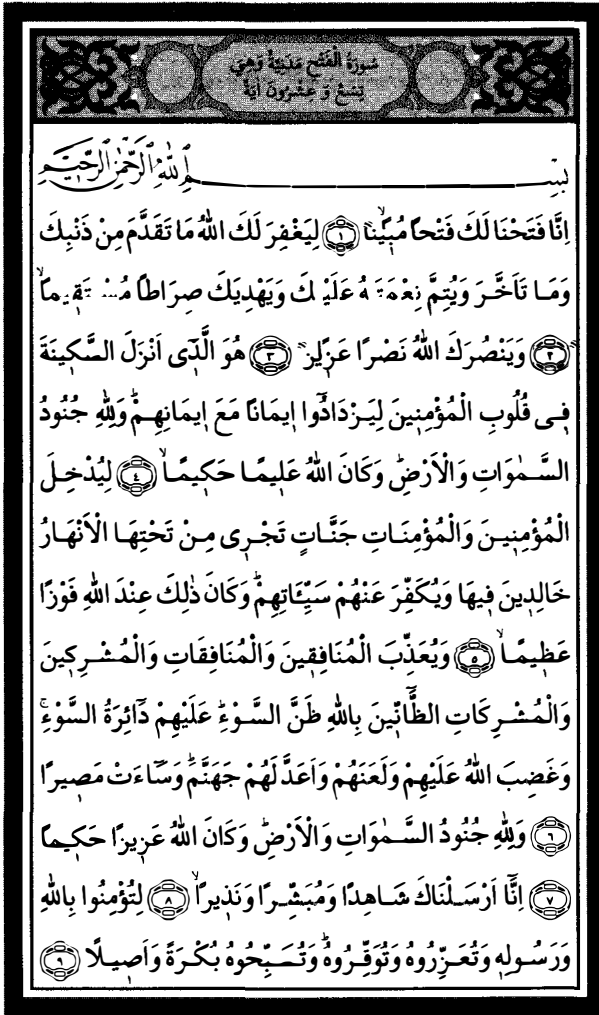 سُورَةُ الْفَتْحِ مَدَنِيَّةٌ وَهِيَ
تِسْعٌ وَ عِشْرُونَ اٰيَةً
بِسْمِ اللّٰهِ الرَّحْمٰنِ الرَّحٖيمِ
اِنَّا فَتَحْنَا لَكَ فَتْحًا مُبٖينًاۙ ﴿١﴾ لِيَغْفِرَ لَكَ اللّٰهُ مَا تَقَدَّمَ مِنْ ذَنْبِكَ
وَمَا تَاَخَّرَ وَيُتِمَّ نِعْمَتَهُ عَلَيْكَ وَيَهْدِيَكَ صِرَاطًا مُسْتَقٖيمًاۙ
﴿٢﴾ وَيَنْصُرَكَ اللّٰهُ نَصْرًا عَزٖيزًا ﴿٣﴾ هُوَ الَّذٖٓى اَنْزَلَ السَّكٖينَةَ
فٖى قُلُوبِ الْمُؤْمِنٖينَ لِيَزْدَادُٓوا اٖيمَانًا مَعَ اٖيمَانِهِمْۜ وَلِلّٰهِ جُنُودُ
السَّمٰوَاتِ وَالْاَرْضِۜ وَكَانَ اللّٰهُ عَلٖيمًا حَكٖيمًاۙ ﴿٤﴾ لِيُدْخِلَ
الْمُؤْمِنٖينَ وَالْمُؤْمِنَاتِ جَنَّاتٍ تَجْرٖى مِنْ تَحْتِهَا الْاَنْهَارُ
خَالِدٖينَ فٖيهَا وَيُكَفِّرَ عَنْهُمْ سَيِّئَاتِهِمْۜ وَكَانَ ذٰلِكَ عِنْدَ اللّٰهِ فَوْزًا
عَظٖيمًاۙ ﴿٥﴾ وَيُعَذِّبَ الْمُنَافِقٖينَ وَالْمُنَافِقَاتِ وَالْمُشْرِكٖينَ
وَالْمُشْرِكَاتِ الظَّٓانّٖينَ بِاللّٰهِ ظَنَّ السَّوْءِۜ عَلَيْهِمْ دَٓائِرَةُ السَّوْءِۚ
وَغَضِبَ اللّٰهُ عَلَيْهِمْ وَلَعَنَهُمْ وَاَعَدَّ لَهُمْ جَهَنَّمَۜ وَسَٓاءَتْ مَصٖيرًا
﴿٦﴾ وَلِلّٰهِ جُنُودُ السَّمٰوَاتِ وَالْاَرْضِۜ وَكَانَ اللّٰهُ عَزٖيزًا حَكٖيمًا
﴿٧﴾ اِنَّٓا اَرْسَلْنَاكَ شَاهِدًا وَمُبَشِّرًا وَنَذٖيرًاۙ ﴿٨﴾ لِتُؤْمِنُوا بِاللّٰهِ
وَرَسُولِهٖ وَتُعَزِّرُوهُ وَتُوَقِّرُوهُۜ وَتُسَبِّحُوهُ بُكْرَةً وَاَصٖيلًا ﴿٩﴾